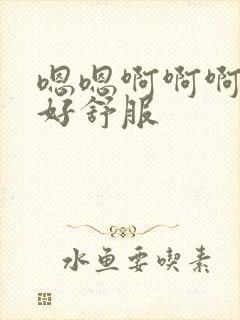 嗯嗯啊啊啊
好舒服
水鱼要喫素